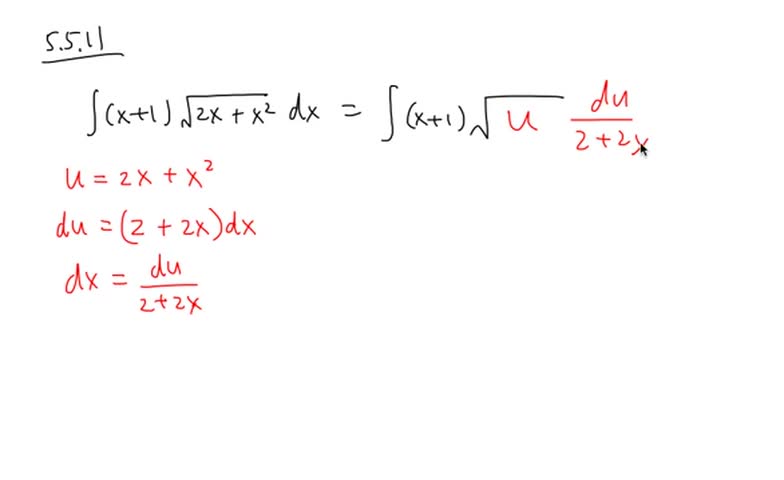 5.5.11
∫(x+1) √(2x + x²) dx = ∫(x+1) √u du/(2+2x)
u = 2x + x²
du = (2 + 2x)dx
dx = du/(2+2x)